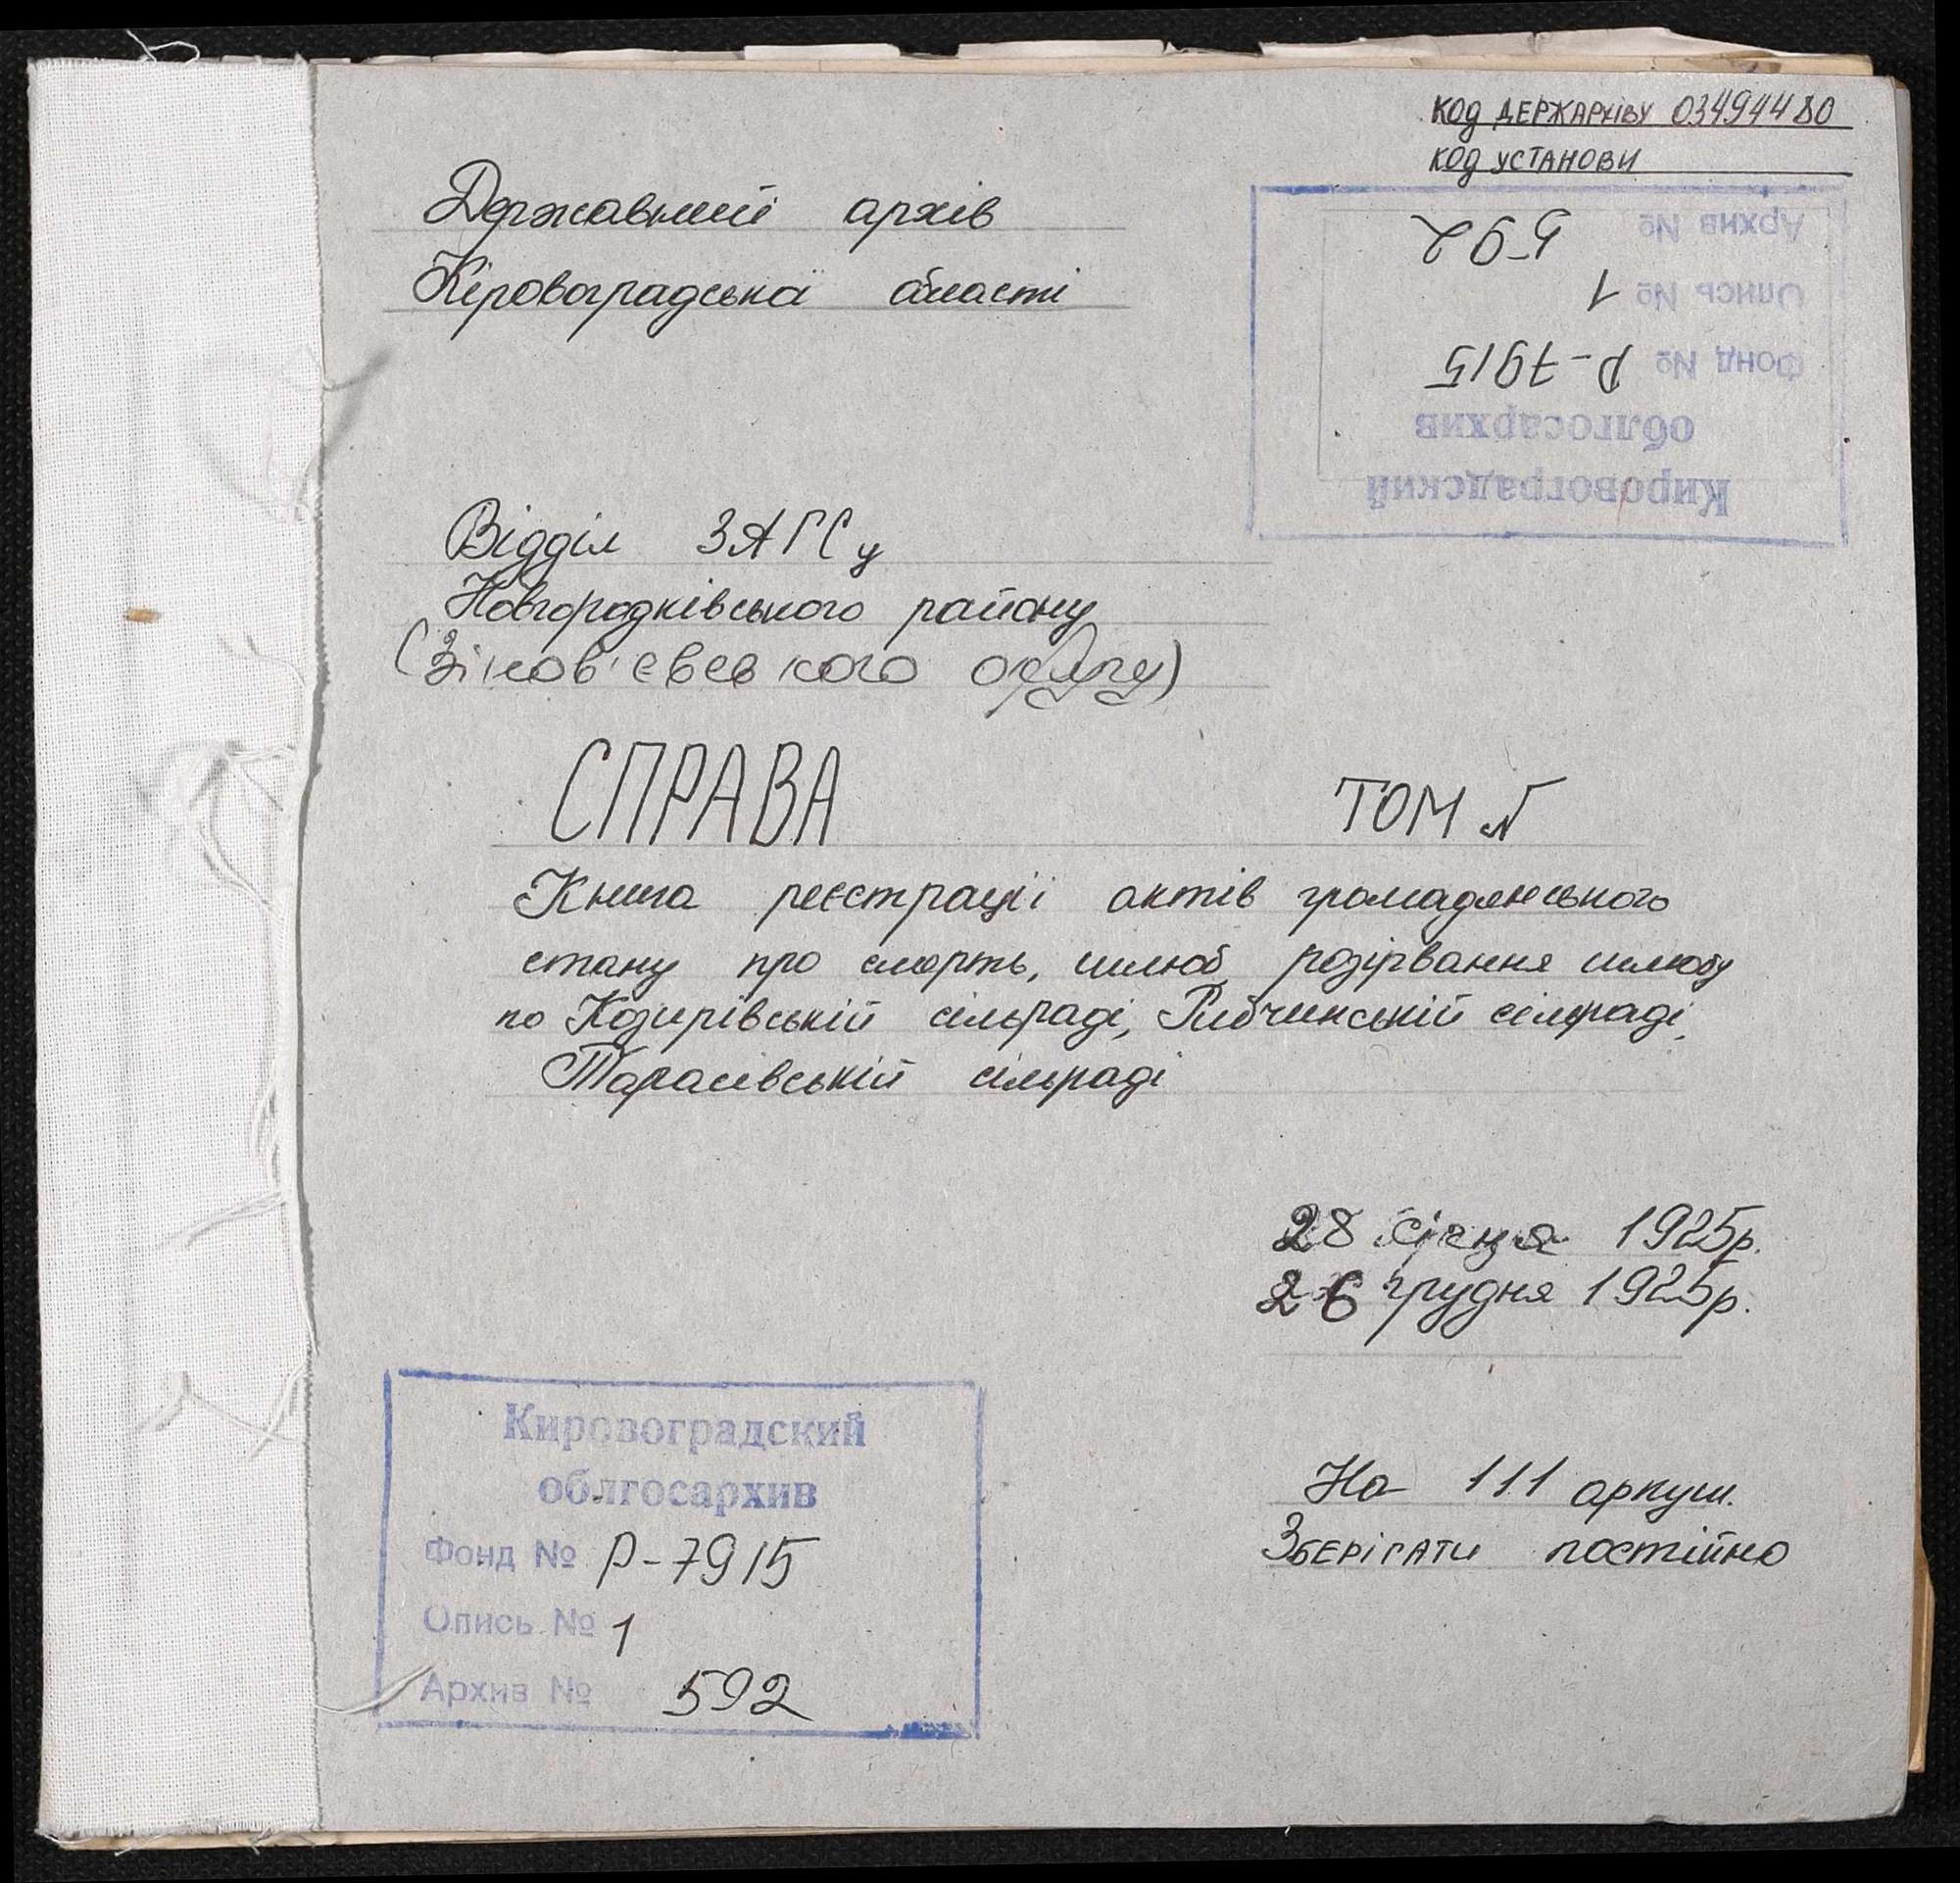 КОД ДЕРЖАРХІВУ 03494480
КОД УСТАНОВИ
Державний архів
Кіровоградської області
Кировоградский
облгосархив
Фонд № Р-7915
Опись № 1
Архив № 592
Відділ ЗАГСу
Новгородківського району
(Зінов'євського округу)
СПРАВА ТОМ №
Книга реєстрації актів громадянського
стану про смерть, шлюб, розірвання шлюбу
по Козирівській сільраді, Рибчинській сільраді,
Тарасівській сільраді
28 січня 1925р.
26 грудня 1925р.
На 111 аркуш.
Зберігати постійно
Кировоградский
облгосархив
Фонд № Р-7915
Опись № 1
Архив № 592